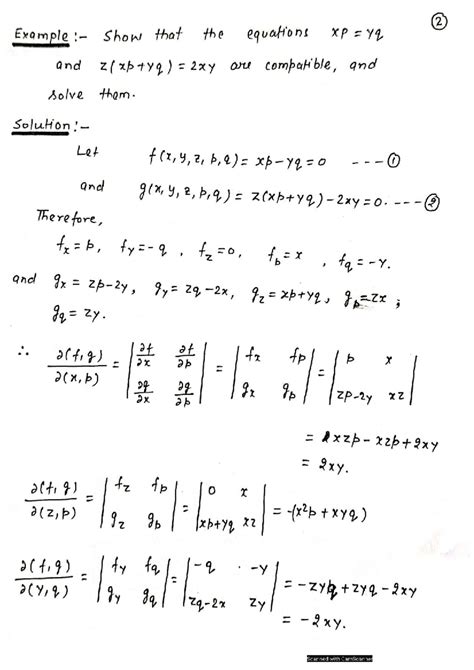 ②
Example :- Show that the equations xp = yq
and z(xp+yq) = 2xy are compatible, and
solve them.
Solution :-
Let f(x, y, z, p, q) = xp-yq = 0 ---①
and g(x, y, z, p, q) = z(xp+yq) - 2xy = 0. ---②
Therefore,
fx = p, fy = -q, fz = 0, fp = x, fq = -y.
and gx = zp-2y, gy = zq-2x, gz = xp+yq, gp = zx ;
gq = zy.
∴ ∂(f,g)/∂(x,p) = |∂f/∂x ∂f/∂p; ∂g/∂x ∂g/∂p| = |fx fp; gx gp| = |p x; zp-2y xz|
= xzp - xzp + 2xy
= 2xy.
∂(f,g)/∂(z,p) = |fz fp; gz gp| = |0 x; xp+yq xz| = -(x²p + xyq)
∂(f,g)/∂(y,q) = |fy fq; gy gq| = |-q -y; zq-2x zy| = -zyq + zyq - 2xy
= -2xy.
Scanned with CamScanner